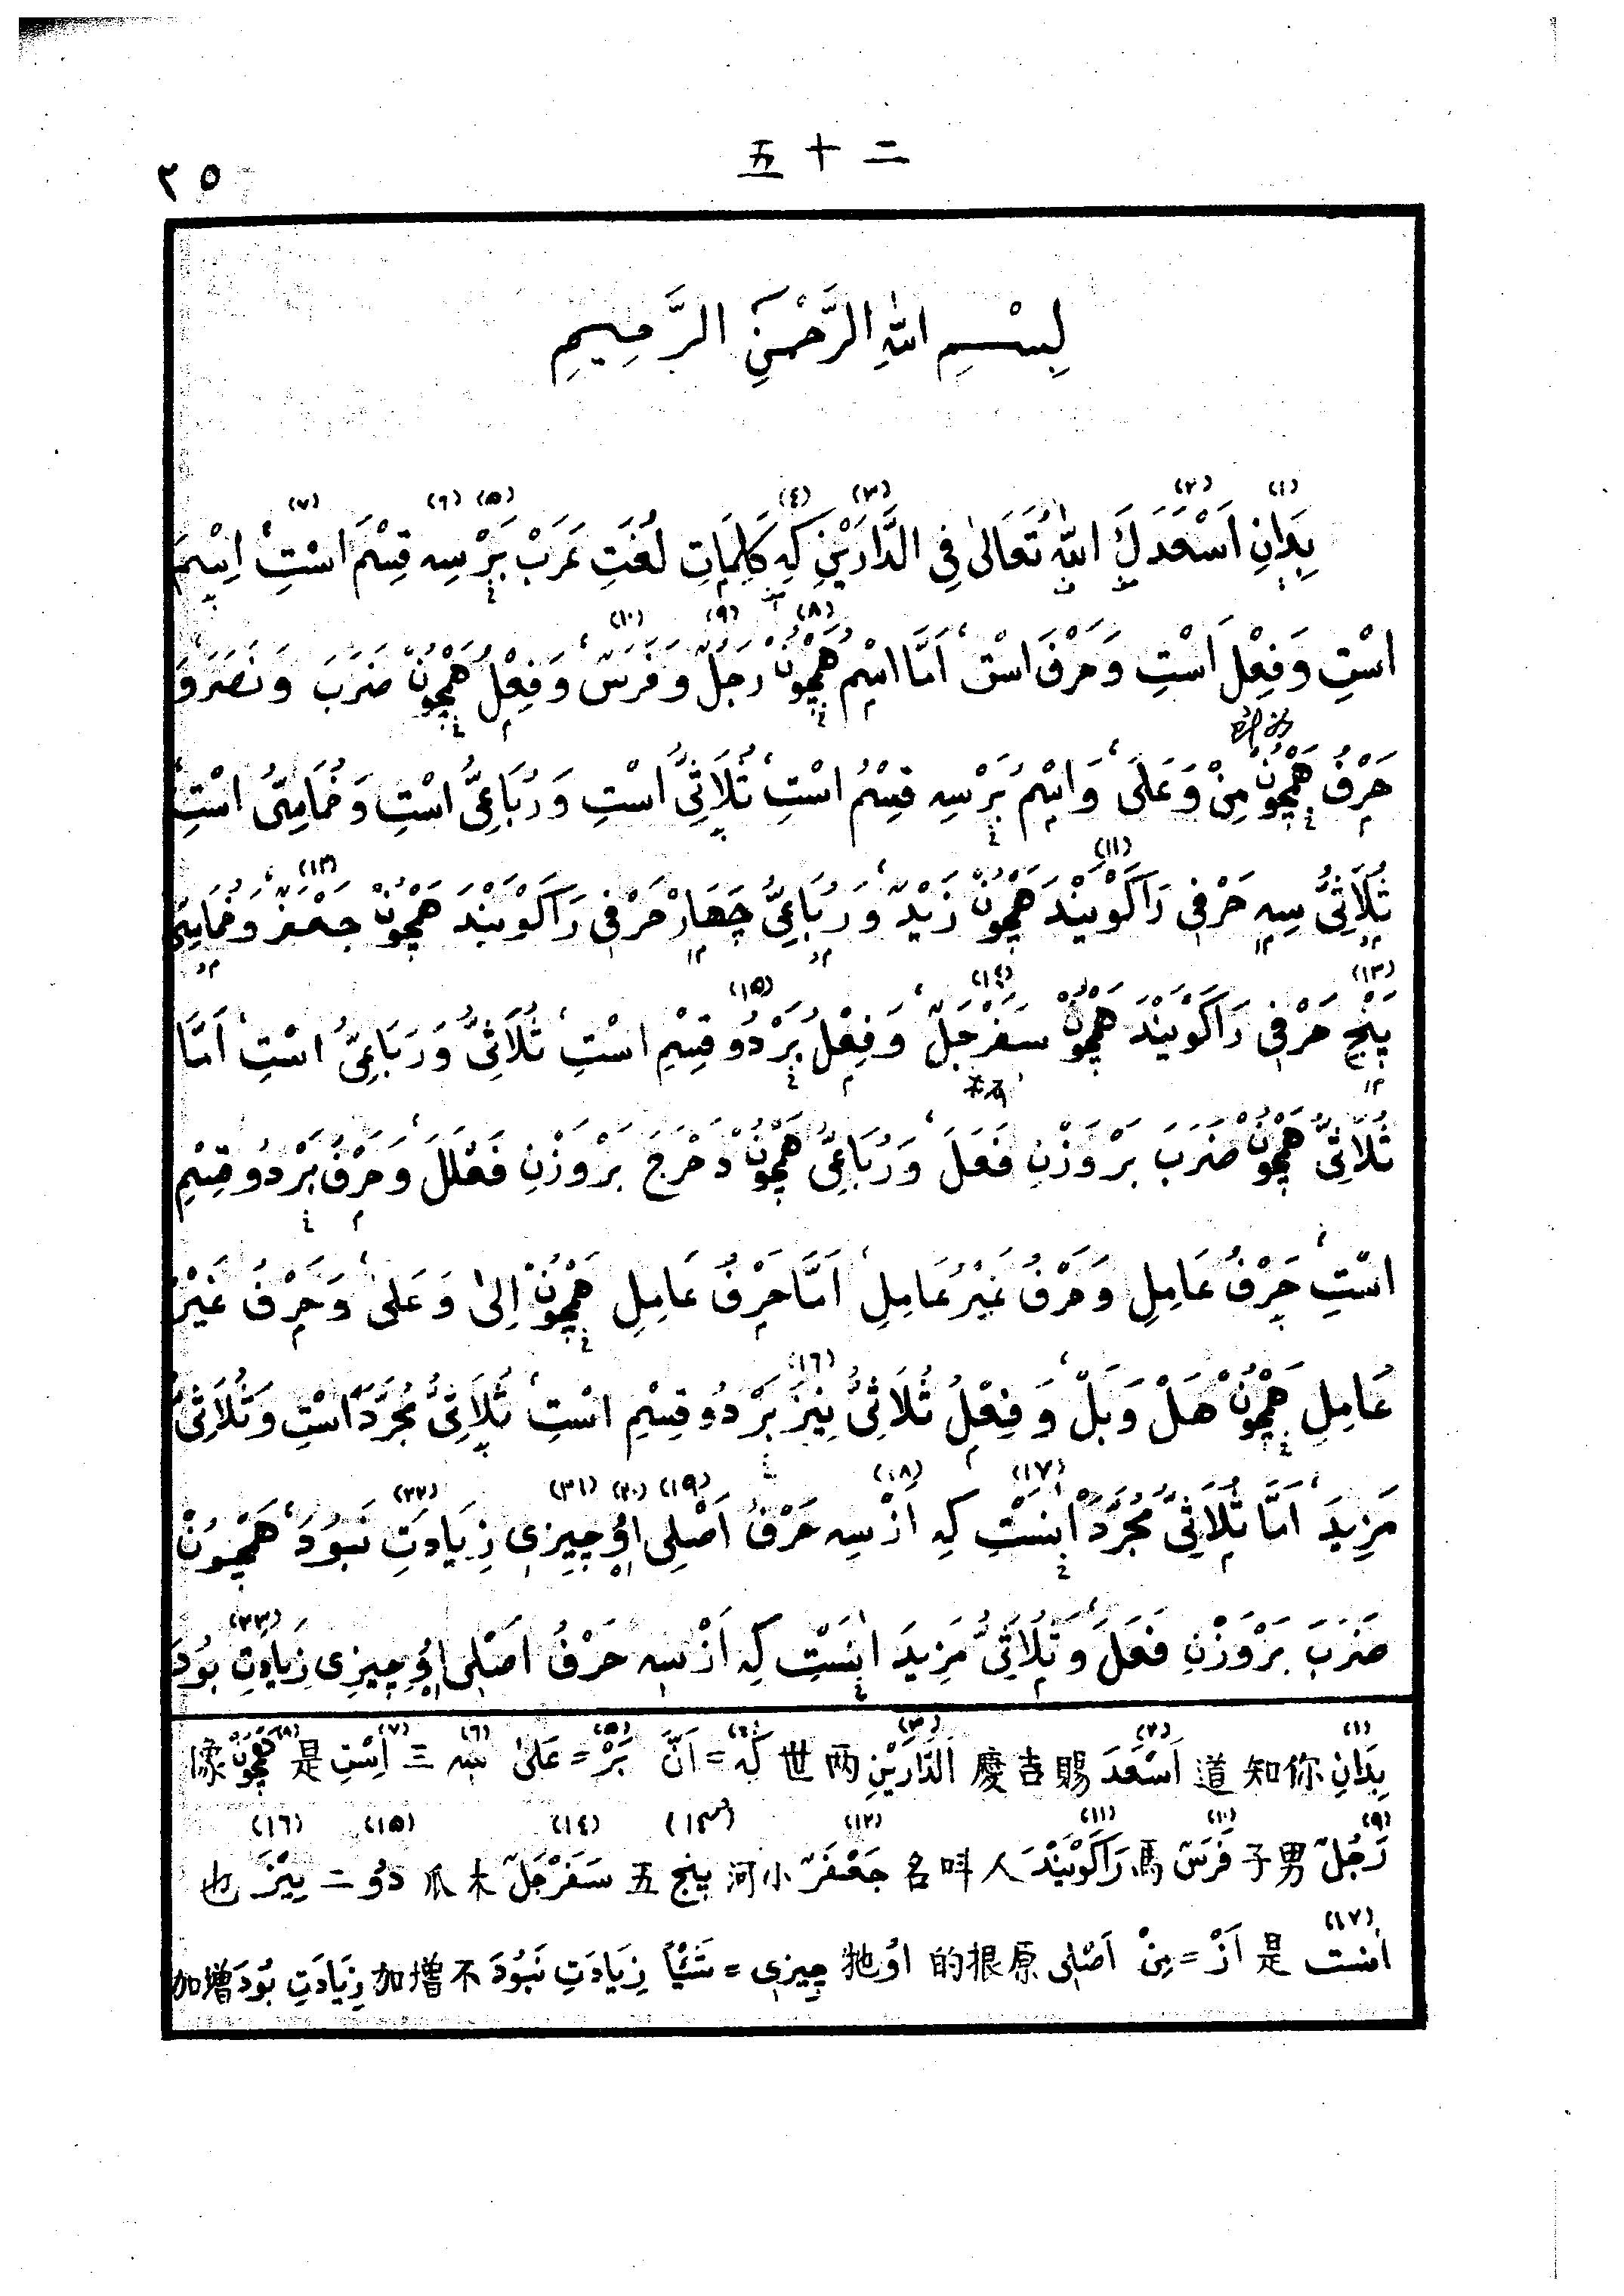 二十五
٢٥
بِسْمِ اللّٰهِ الرَّحْمٰنِ الرَّحِيمِ
بِدَانِ اَسْعَدَكَ اللّٰهُ تَعَالىٰ فِي الدَّارَيْنِ كِه كَلِمَاتِ لُغَتِ عَرَبْ بَرْ سِه قِسْمَ اسْتِ اِسْمَ
اسْتِ وَفِعْلَ اسْتِ وَحَرْفَ اسْتِ اَمَّا اسْمِ هَمْچُونْ رَجُلٌ وَفَرَسٌ وَفِعْلُ هَمْچُونْ ضَرَبَ وَنَصَرَ وَ
حَرْفُ هَمْچُونْ مِنْ وَعَلىٰ وَاسْمُ بَرْ سِه قِسْمُ اسْتِ ثُلَاثِىُّ اسْتِ وَرُبَاعِىُّ اسْتِ وَخُمَاسِىُّ اسْتِ
ثُلَاثِىُّ سِه حَرْفِى رَاكَوْيَنْدَ هَمْچُونْ زَيْدٌ وَرُبَاعِىُّ چَهَارْ حَرْفِى رَاكَوْيَنْدَ هَمْچُونْ جَعْفَرٌ وَخُمَاسِىُّ
پَنْج حَرْفِى رَاكَوْيَنْدَ هَمْچُونْ سَفَرْجَلٌ وَفِعْلُ بَرْ دُو قِسْمِ اسْتِ ثُلَاثِىُّ وَرُبَاعِىُّ اسْتِ اَمَّا
ثُلَاثِىُّ هَمْچُونْ ضَرَبَ بَرْوَزْنِ فَعَلَ وَرُبَاعِىُّ هَمْچُونْ دَحْرَجَ بَرْوَزْنِ فَعْلَلَ وَحَرْفُ بَرْ دُو قِسْمِ
اسْتِ حَرْفُ عَامِلِ وَحَرْفُ غَيْرُ عَامِلِ اَمَّا حَرْفُ عَامِلِ هَمْچُونْ اِلىٰ وَعَلىٰ وَحَرْفُ غَيْرُ
عَامِلِ هَمْچُونْ هَلْ وَبَلْ وَفِعْلُ ثُلَاثِىُّ نِيزَ بَرْ دُو قِسْمِ اسْتِ ثُلَاثِىُّ مُجَرَّدَ اسْتِ وَثُلَاثِىُّ
مَزِيدَ اَمَّا ثُلَاثِىُّ مُجَرَّدَ اٰنَسْتِ كِه اَزْ سِه حَرْفُ اَصْلِى اوُ چِيزِى زِيَادَتِ نَبُودَ هَمْچُونْ
ضَرَبَ بَرْوَزْنِ فَعَلَ وَثُلَاثِىُّ مَزِيدَ اٰنَسْتِ كِه اَزْ سِه حَرْفُ اَصْلِى اوُ چِيزِى زِيَادَتِ بُودَ
(١) بِدَانِ 你知道 (٢) اَسْعَدَ 賜吉慶 (٣) اَلدَّارَيْنِ 两世 (٤) كِه = اَنَّ (٥) بَرْ = عَلىٰ (٦) سِه 三 (٧) اَسْتِ 是 (٨) هَمْچُونْ 像
(٩) رَجُلٌ 男子 (١٠) فَرَسٌ 馬 (١١) رَاكَوْيَنْدَ 人呌名 (١٢) جَعْفَرٌ 小河 (١٣) پنج 五 (١٤) سَفَرْجَلٌ 木瓜 (١٥) دُوْ 二 (١٦) نِيْزَ 也
(١٧) اٰنست 是 اَزْ = مِنْ اَصْلِى 原根的 اوُ 牠 چِيزِى = شَيْئاً زِيَادَتِ نَبُودَ 不增加 زِيَادَتِ بُودَ 增加